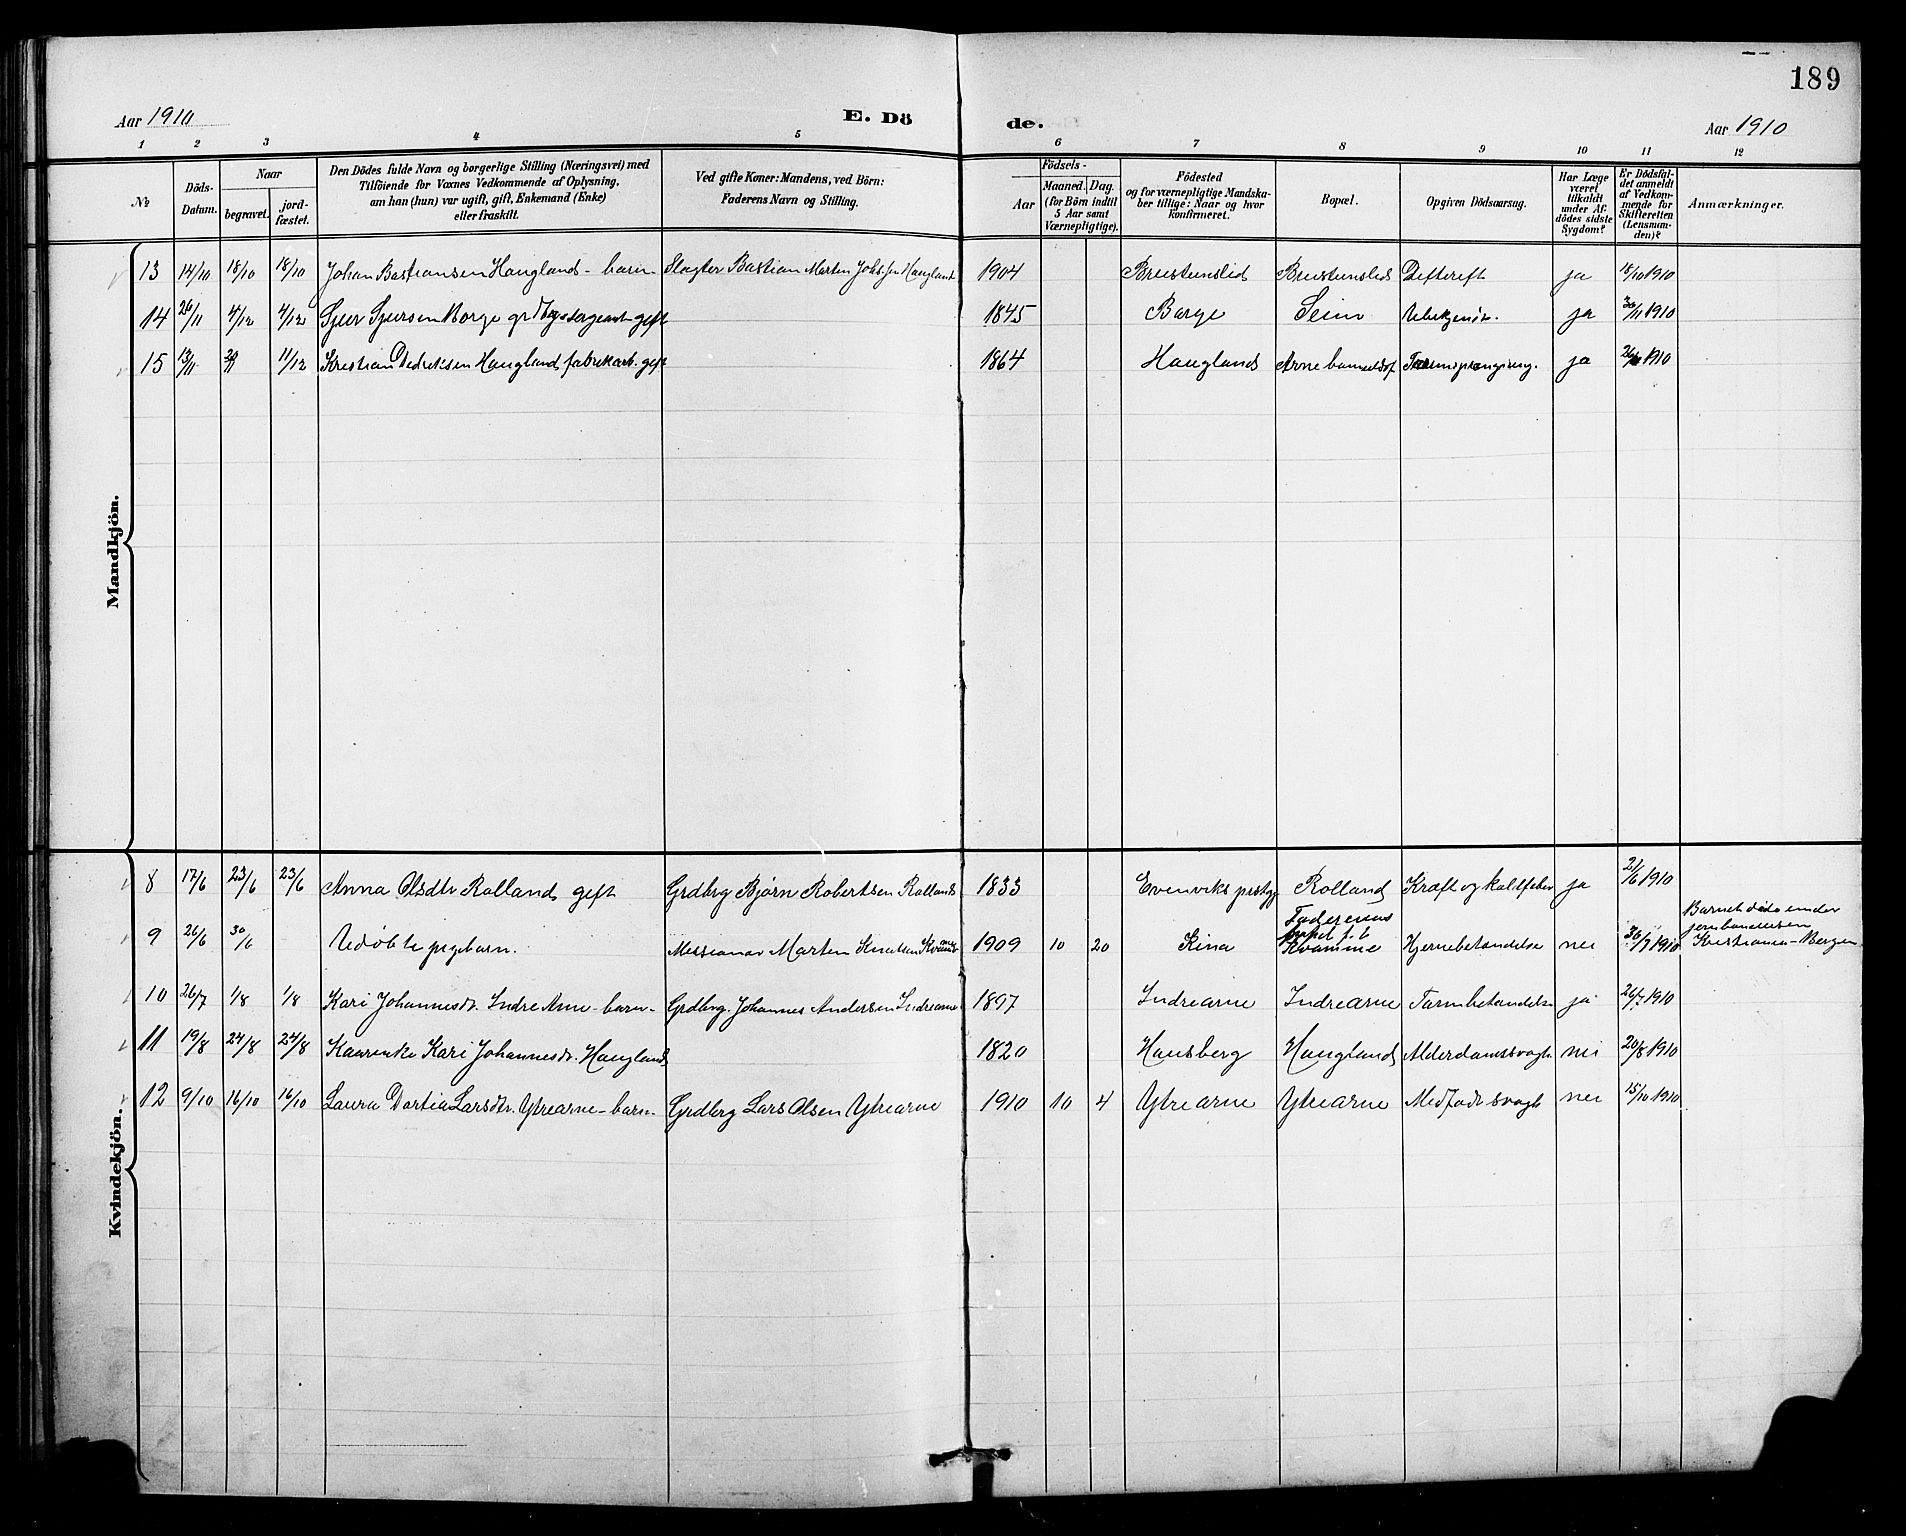 189
Aar 1910
E. Dö
de.
Aar 1910
1 2 3 4 5 6 7 8 9 10 11 12
№
Döds-
Datum.
Naar
begravet.
jord-
fæstet.
Den Dödes fulde Navn og borgerlige Stilling (Næringsvei) med
Tilföiende for Voxnes Vedkommende af Oplysning,
om han (hun) var ugift, gift, Enkemand (Enke)
eller fraskilt.
Ved gifte Koner: Mandens, ved Börn:
Faderens Navn og Stilling.
Födsels-
Aar
Maaned. Dag.
(for Börn indtil
5 Aar samt
Værnepligtige).
Födested
og for værnepligtige Mandska-
ber tillige: Naar og hvor
konfirmeret.
Bopæl.
Opgiven Dödsaarsag.
Har Læge
været
tilkaldt
under Af-
dödes sidste
Sygdom?
Er Dödsfal-
det anmeldt
af Vedkom-
mende for
Skifteretten
(Lensman-
den)?
Anmærkninger.
Mandkjön.
13 14/10 18/10 18/10 Johan Bastiansen Haugland - barn- Slagter Bastian Marten Haugland 1904 Difterit ja 18/10 1910
14 26/11 4/12 4/12 Sjur Sjursen Borge gift 1845 Borge Seim ja 30/11 1910
15 13/11 11/12 Kristian Dedriksen Haugland fabrikarb. gift 1864 Haugland Arne ja 1910
Kvindekjön.
8 17/6 23/6 23/6 Anna Olsdtr Rolland gift Grdbrg Bjørn Robertsen Rolland 1833 Evenviks prstgj Rolland Kræft og koldfeber ja 21/6 1910
9 26/6 30/6 Udøbte pigebarn. Missionær Marten Knutsen 1909 10 20 Kina Faderens Kvamme Hjernebetændelse nei 1910 Barnet døde under jernbanereisen Kristiania - Bergen
10 26/7 1/8 1/8 Kari Johannesdr. Indre Arne - barn- Grdbrg. Johannes Andersen Indrearne 1897 Indrearne Indrearne Tarmbetændelse ja 26/7 1910
11 19/8 24/8 24/8 Kaarenke Kari Johannesdr. Haugland 1820 Hausberg Haugland Alderdomssvagh. nei 20/8 1910
12 9/10 16/10 16/10 Laura Dortea Larsdtr. Ytrearne - barn- Grdbrg Lars Olsen Ytrearne 1910 10 4 Ytrearne Ytrearne Medfødt svagh. nei 15/10 1910